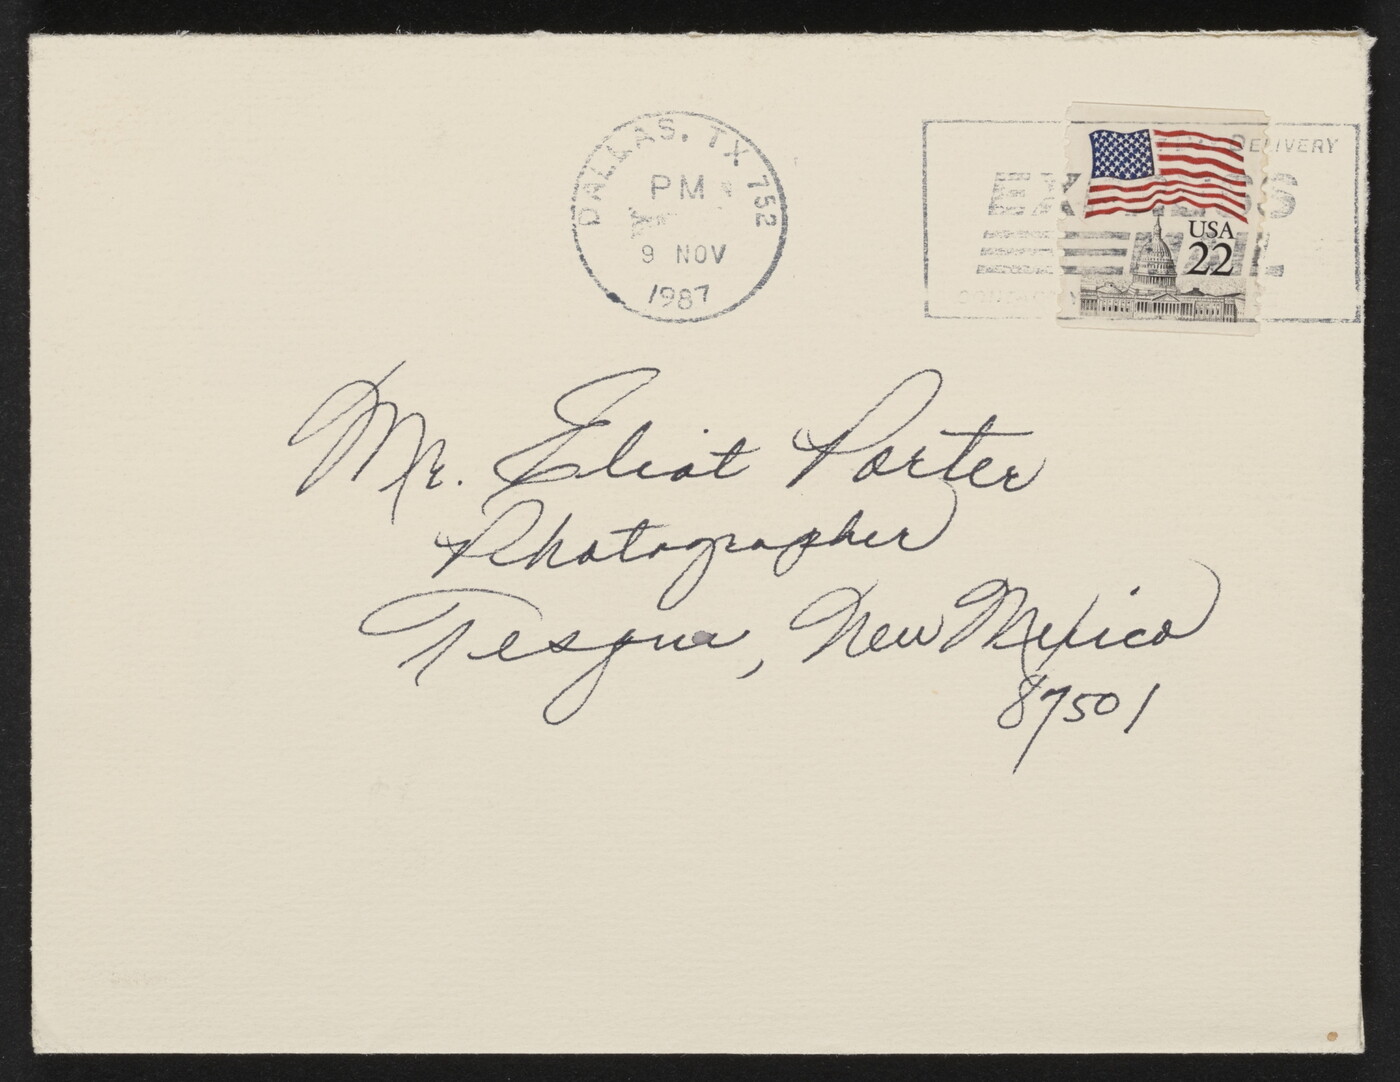 DALLAS, TX 752
PM
9 NOV
1987
DELIVERY
EXPRESS
MAIL
USA
22
Mr. Eliot Porter
Photographer
Tesque, New Mexico
87501